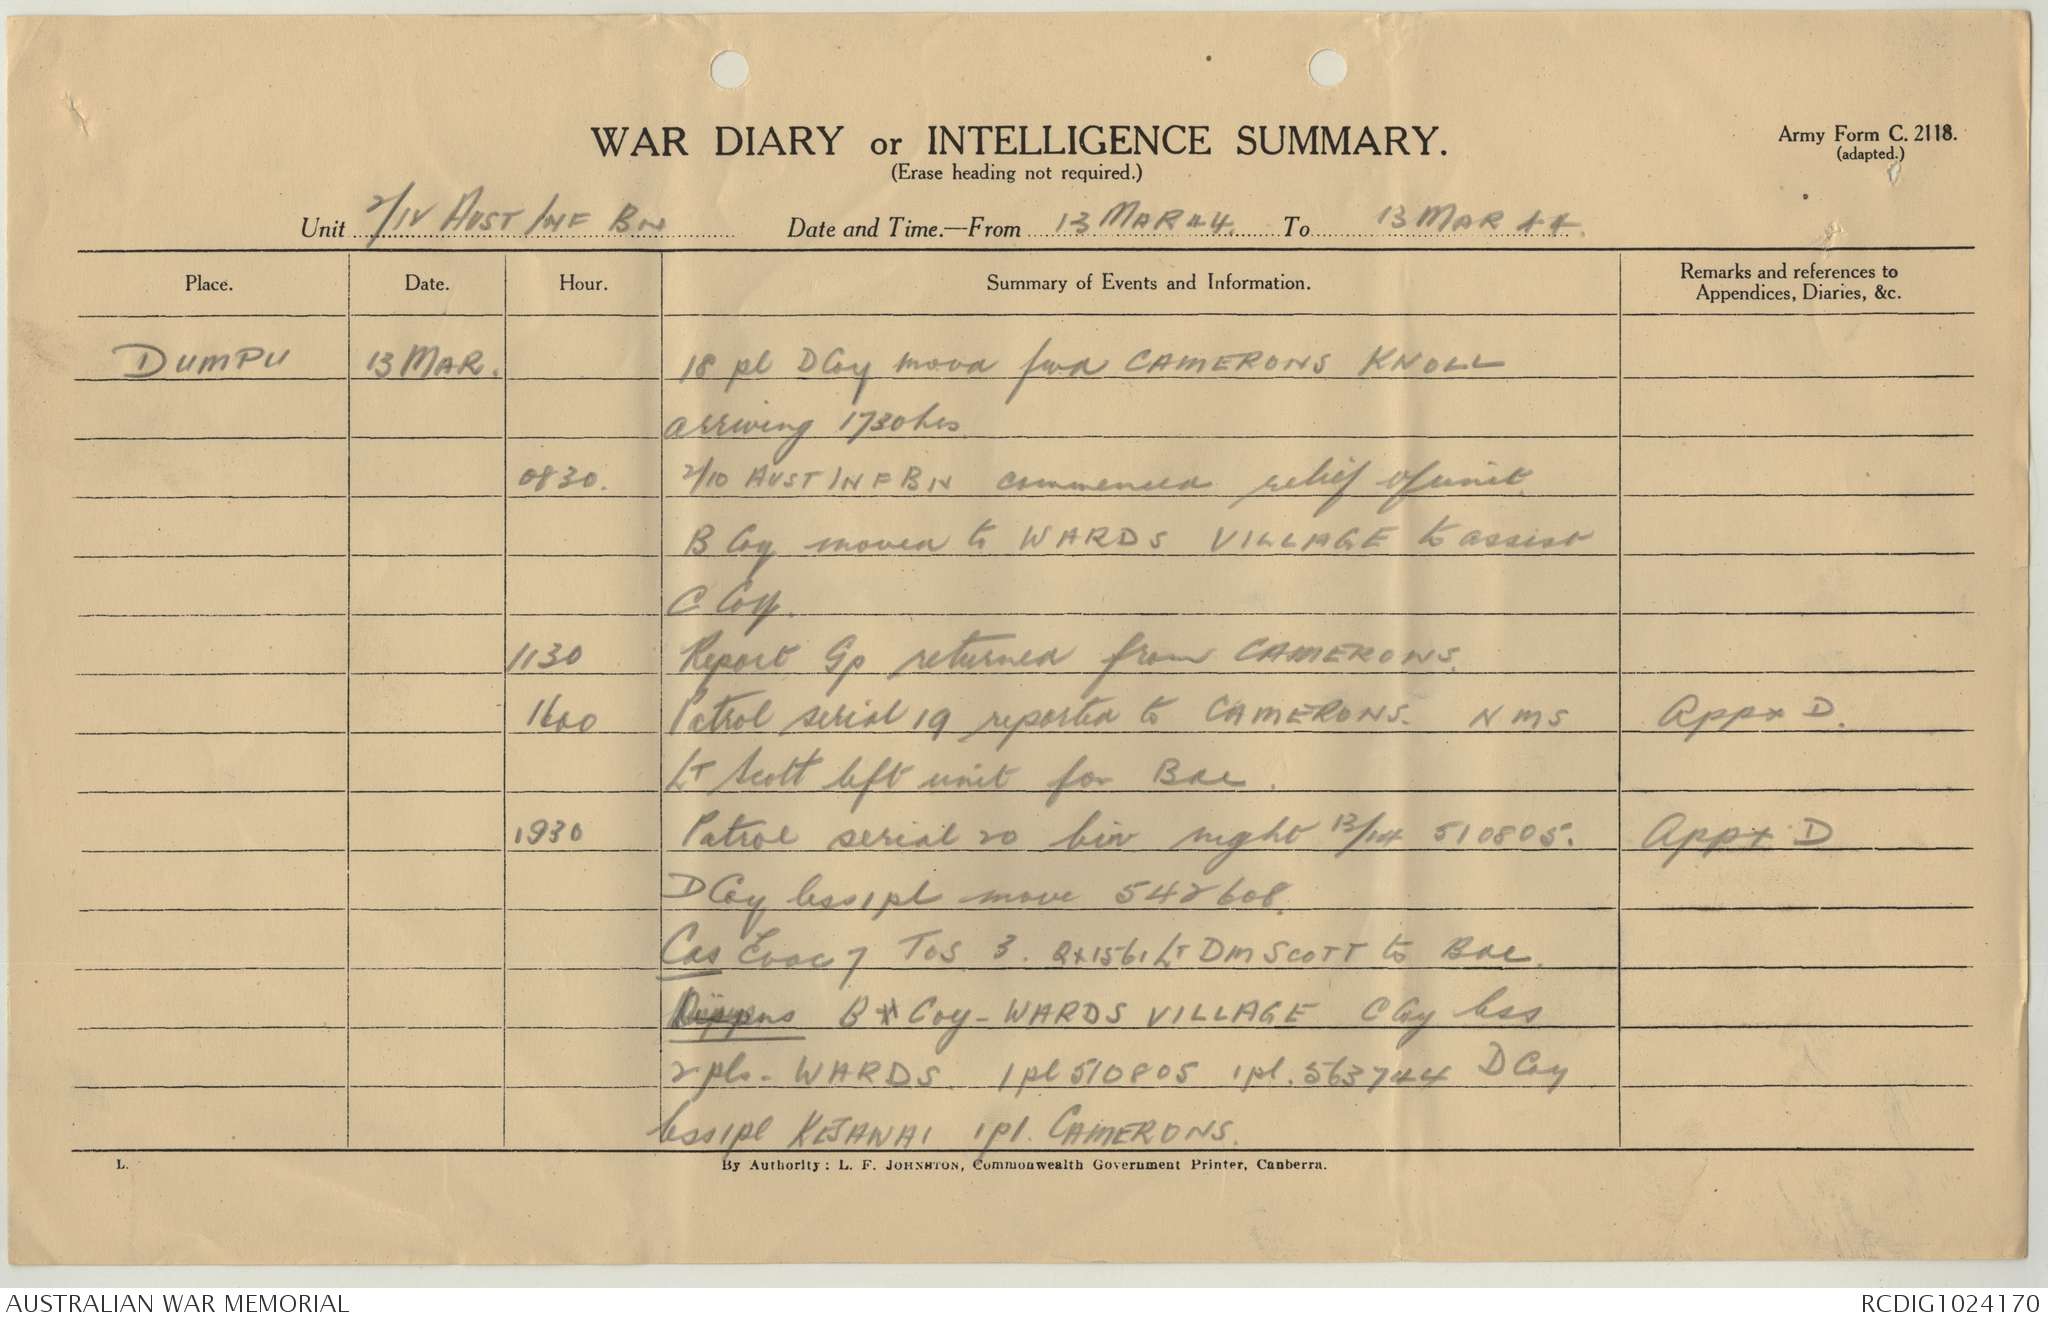 WAR DIARY or INTELLIGENCE SUMMARY.
(Erase heading not required.)
Army Form C. 2118.
(adapted.)
Unit AUST INF BN Date and Time.—From 13 MAR 44. To 13 MAR 44.
Place. Date. Hour. Summary of Events and Information. Remarks and references to Appendices, Diaries, &c.
DUMPU 13 MAR. 18 pl D Coy moved fwd CAMERONS KNOLL
arriving 1730hrs
0830. 2/10 AUST INF BN commenced relief of unit.
B Coy moved to WARDS VILLAGE to assist
C Coy.
1130 Report Gp returned from CAMERONS.
1600 Patrol serial 19 reported to CAMERONS. NMS Appx D.
LT Scott left unit for Bde.
1930 Patrol serial 20 biv night 13/14 510805. Appx D
D Coy less 1 pl move 542608.
Cas Evac 7 TOS 3. QX1561 LT DM SCOTT to Bde.
B Coy - WARDS VILLAGE C Coy less
2 pls - WARDS. 1 pl 510805 1 pl. 563744 D Coy
less 1 pl KESAWAI 1 pl. CAMERONS.
L. By Authority: L. F. JOHNSTON, Commonwealth Government Printer, Canberra.
AUSTRALIAN WAR MEMORIAL RCDIG1024170